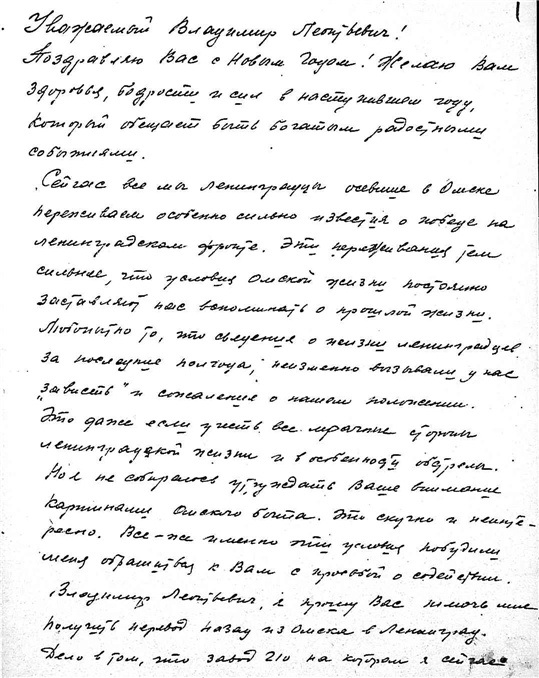 1
Уважаемый Владимир Леонтьевич!
Поздравляю Вас с Новым Годом! Желаю Вам
здоровья, бодрости и сил в наступившем году,
который обещает быть богатым радостными
событиями.
Сейчас все мы ленинградцы осевшие в Омске
переживаем особенно сильно известия о победе на
ленинградском фронте. Эти переживания тем
сильнее, что условия Омской жизни постоянно
заставляют нас вспоминать о прошлой жизни.
Любопытно то, что сведения о жизни ленинградцев
за последние полгода, неизменно вызывали у нас
"зависть" и сожаление о нашем положении.
Это даже если учесть все мрачные стороны
ленинградской жизни и в особенности обстрелы.
Но я не собираюсь утруждать Ваше внимание
картинами Омского быта. Это скучно и неинте-
ресно. Все-же именно эти условия побудили
меня обратиться к Вам с просьбой о содействии.
Владимир Леонтьевич, я прошу Вас помочь мне
получить перевод назад из Омска в Ленинград.
Дело в том, что завод 210 на котором я сейчас